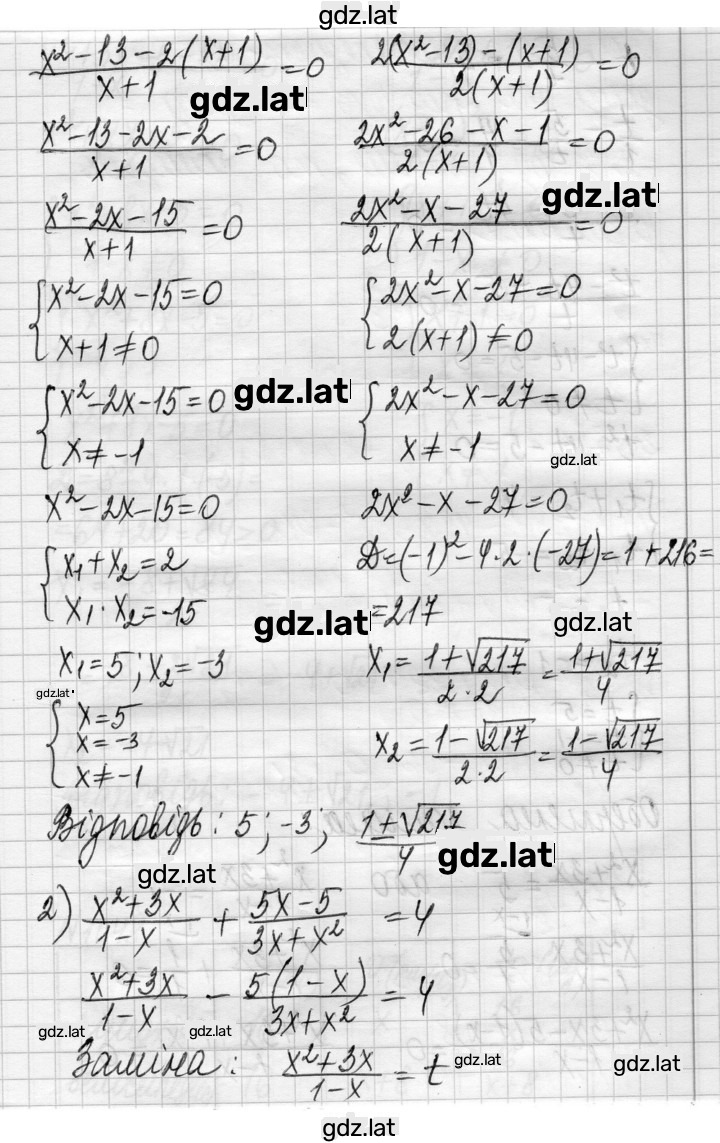 gdz.lat
(x²-13-2(x+1))/(x+1) = 0
(2(x²-13)-(x+1))/(2(x+1)) = 0
gdz.lat
(x²-13-2x-2)/(x+1) = 0
(2x²-26-x-1)/(2(x+1)) = 0
gdz.lat
(x²-2x-15)/(x+1) = 0
(2x²-x-27)/(2(x+1)) = 0
{ x²-2x-15=0
x+1≠0
{ 2x²-x-27=0
2(x+1)≠0
{ x²-2x-15=0
x≠-1
gdz.lat
{ 2x²-x-27=0
x≠-1
gdz.lat
x²-2x-15=0
2x²-x-27=0
{ x₁+x₂=2
x₁·x₂=-15
D=(-1)²-4·2·(-27)=1+216=
=217
gdz.lat
gdz.lat
x₁=5; x₂=-3
x₁ = (1+√217)/(2·2) = (1+√217)/4
gdz.lat
{ x=5
x=-3
x≠-1
x₂ = (1-√217)/(2·2) = (1-√217)/4
Відповідь: 5; -3; (1±√217)/4
gdz.lat
gdz.lat
2) (x²+3x)/(1-x) + (5x-5)/(3x+x²) = 4
(x²+3x)/(1-x) - (5(1-x))/(3x+x²) = 4
gdz.lat
gdz.lat
Заміна: (x²+3x)/(1-x) = t
gdz.lat
gdz.lat
gdz.lat